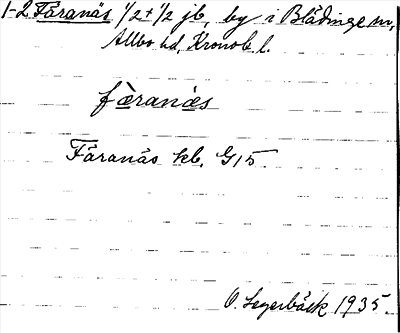 1-2 Fåranäs 1/2 + 1/2 jb, by i Blädinge sn,
Allbo hd, Kronob. l.
fàranæ̀s
Fåranäs kb. G15
O. Segerbäck 1935.